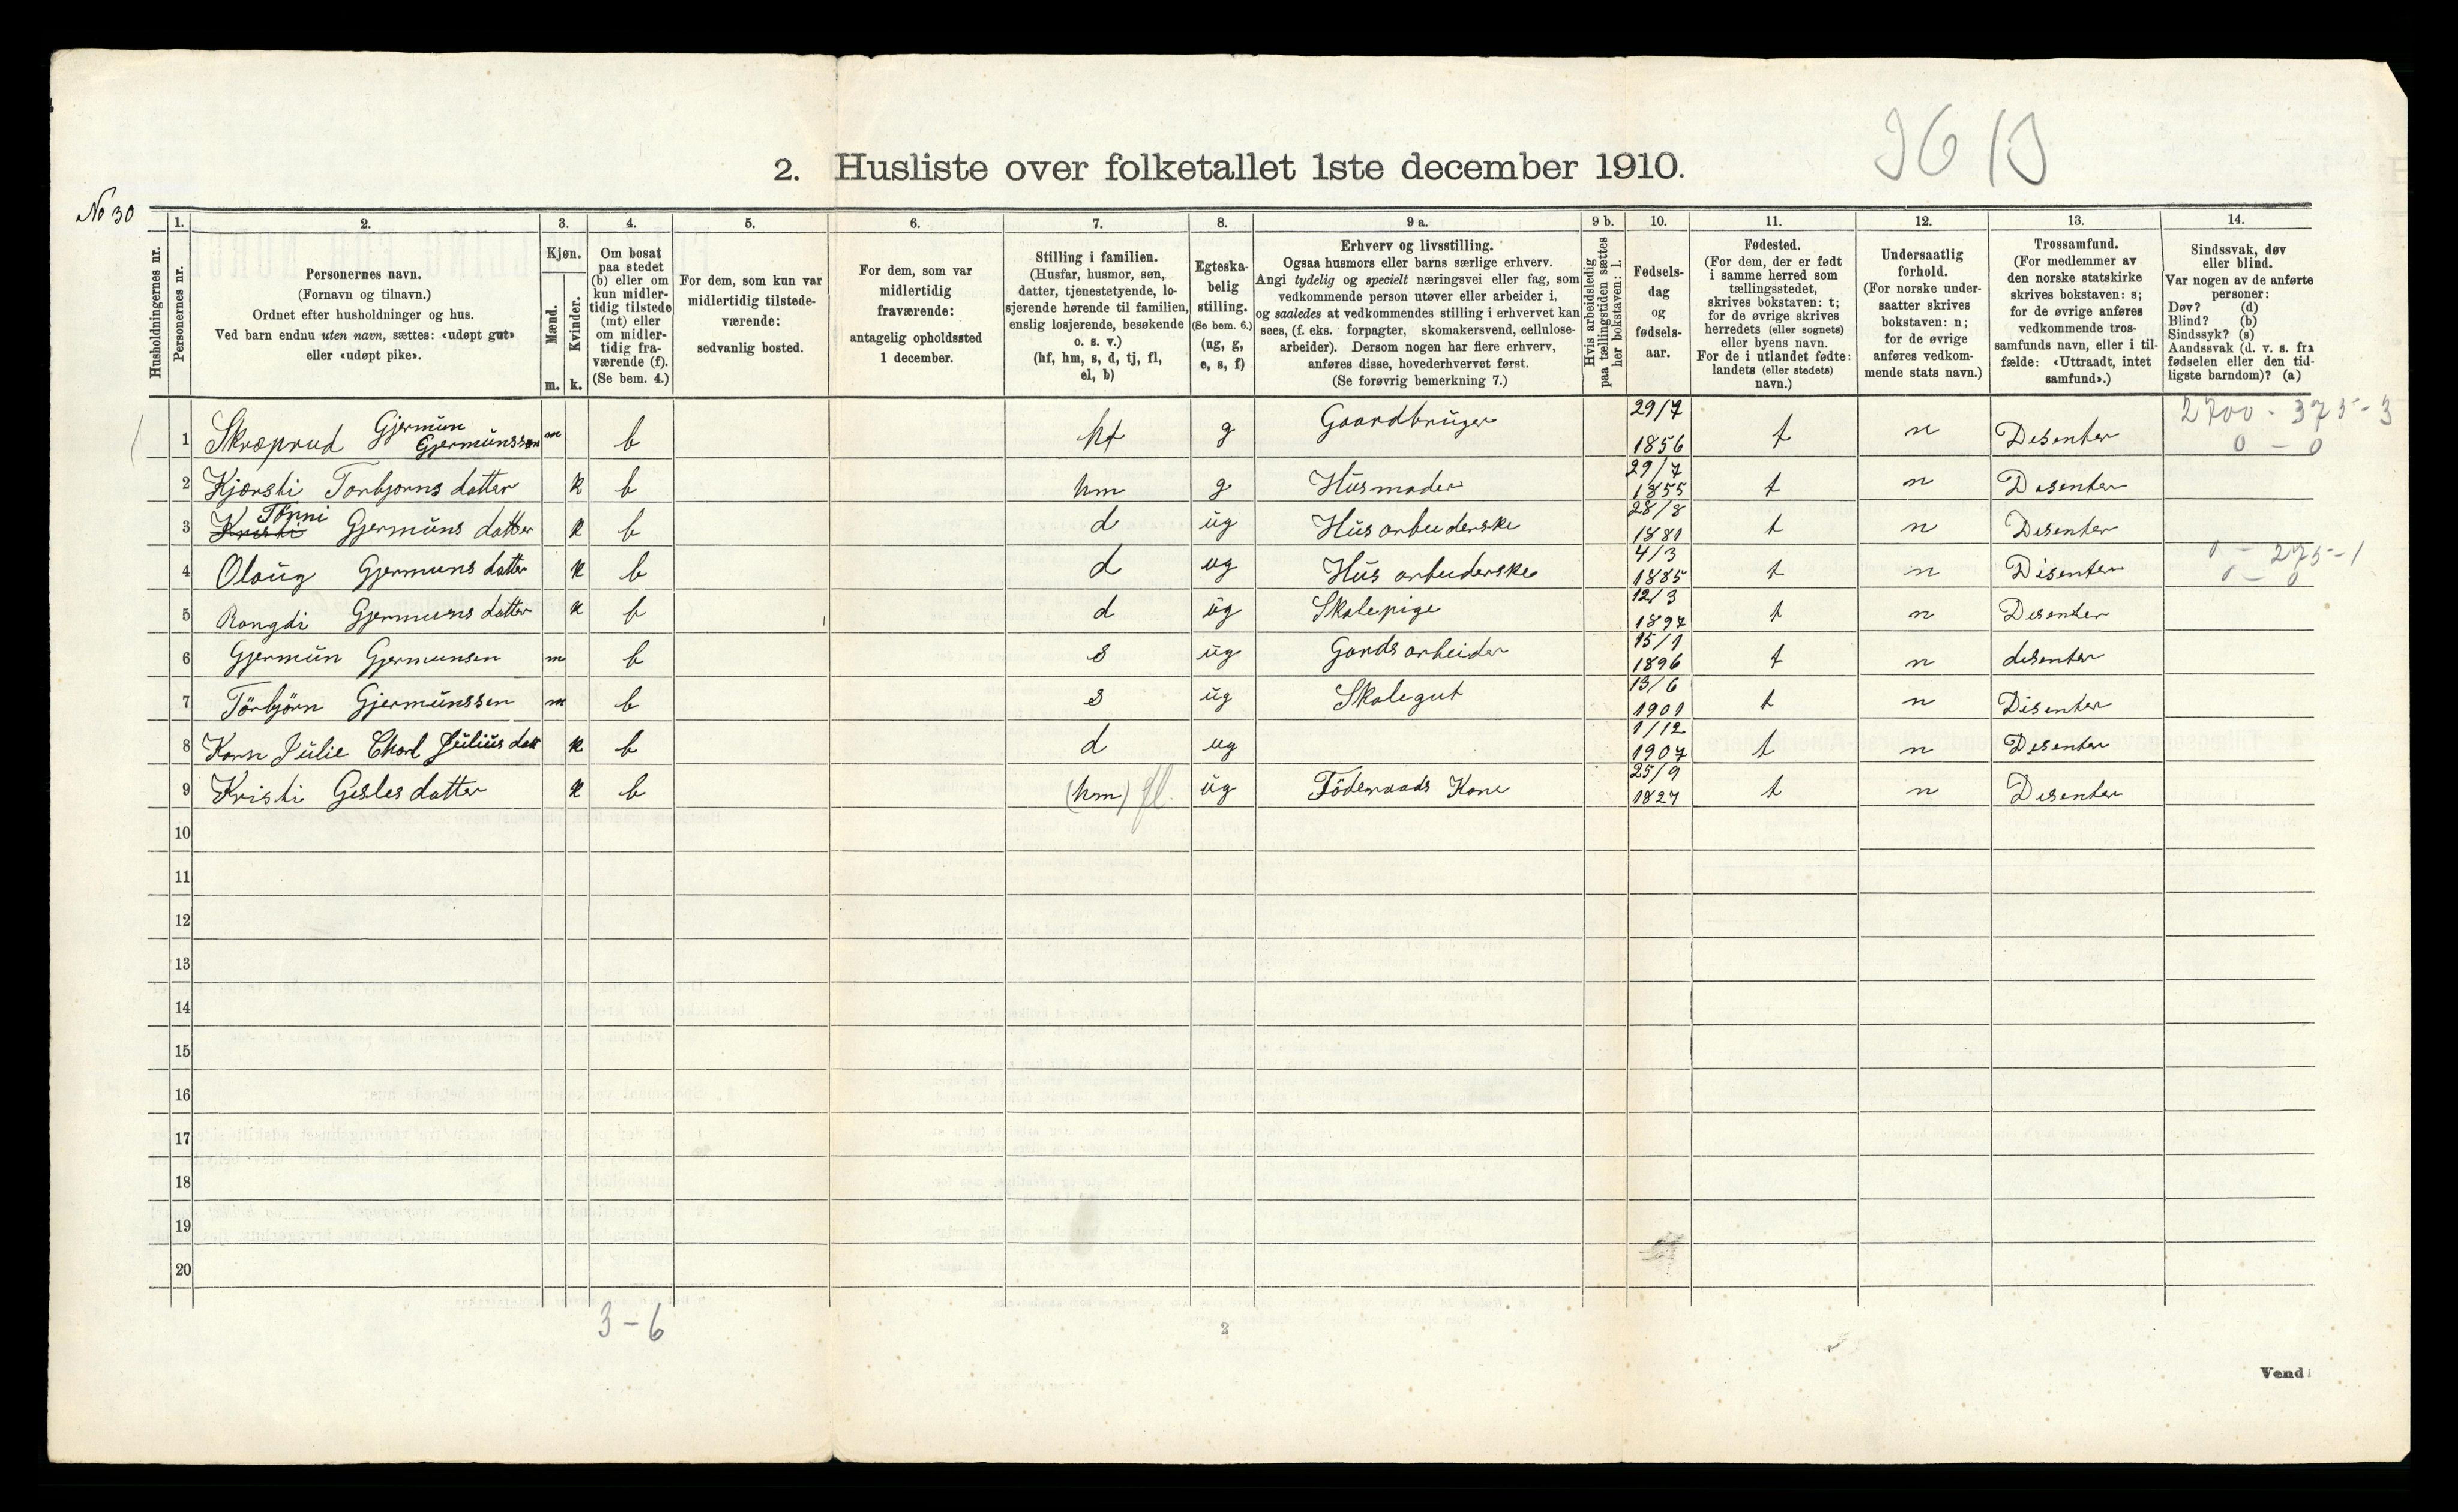 2. Husliste over folketallet 1ste december 1910.
No 30
1. 2. 3. 4. 5. 6. 7. 8. 9 a. 9 b. 10. 11. 12. 13. 14.
Husholdningernes nr.
Personernes nr.
Personernes navn.
(Fornavn og tilnavn.)
Ordnet efter husholdninger og hus.
Ved barn endnu uten navn, sættes: «udøpt gut»
eller «udøpt pike».
Kjøn.
Mænd.
Kvinder.
m. k.
Om bosat
paa stedet
(b) eller om
kun midler-
tidig tilstede
(mt) eller
om midler-
tidig fra-
værende (f).
(Se bem. 4.)
For dem, som kun var
midlertidig tilstede-
værende:
sedvanlig bosted.
For dem, som var
midlertidig
fraværende:
antagelig opholdssted
1 december.
Stilling i familien.
(Husfar, husmor, søn,
datter, tjenestetyende, lo-
sjerende hørende til familien,
enslig losjerende, besøkende
o. s. v.)
(hf, hm, s, d, tj, fl,
el, b)
Egteska-
belig
stilling.
(Se bem. 6.)
(ug, g,
e, s, f)
Erhverv og livsstilling.
Ogsaa husmors eller barns særlige erhverv.
Angi tydelig og specielt næringsvei eller fag, som
vedkommende person utøver eller arbeider i,
og saaledes at vedkommendes stilling i erhvervet kan
sees, (f. eks. forpagter, skomakersvend, cellulose-
arbeider). Dersom nogen har flere erhverv,
anføres disse, hovederhvervet først.
(Se forøvrig bemerkning 7.)
Hvis arbeidsledig
paa tællingstiden sættes
her bokstaven: l.
Fødsels-
dag
og
fødsels-
aar.
Fødested.
(For dem, der er født
i samme herred som
tællingsstedet,
skrives bokstaven: t;
for de øvrige skrives
herredets (eller sognets)
eller byens navn.
For de i utlandet fødte:
landets (eller stedets)
navn.)
Undersaatlig
forhold.
(For norske under-
saatter skrives
bokstaven: n;
for de øvrige
anføres vedkom-
mende stats navn.)
Trossamfund.
(For medlemmer av
den norske statskirke
skrives bokstaven: s;
for de øvrige anføres
vedkommende tros-
samfunds navn, eller i til-
fælde: «Uttraadt, intet
samfund».)
Sindssvak, døv
eller blind.
Var nogen av de anførte
personer:
Døv? (d)
Blind? (b)
Sindssyk? (s)
Aandssvak (d. v. s. fra
fødselen eller den tid-
ligste barndom)? (a)
2700 - 375 - 3
0 - 0
1 Skræprud Gjermun Gjermunsson m b hf g Gaardbruger 29/7 1856 t n Disenter
2 Kjersti Torbjørns datter k b hm g Husmoder 29/7 1855 t n Disenter
3 Kristi Tønni Gjermuns datter k b d ug Hus arbeiderske 28/8 1881 t n Disenter
4 Olaug Gjermuns datter k b d ug Hus arbeiderske 4/3 1885 t n Disenter 0 - 275 - 1
0 - 0
5 Rangdi Gjermuns datter k b d ug Skolepige 12/3 1897 t n Disenter
6 Gjermun Gjermunsen m b s ug Gards arbeider 15/1 1896 t n disenter
7 Törbjörn Gjermunssen m b s ug Skolegut 13/6 1901 t n Disenter
8 Karn Julie Charl Julius datt k b d ug 1/12 1907 t n Disenter
9 Kristi Gisles datter k b (hm) fl. ug Föderaads Kone 25/9 1827 t n Disenter
10
11
12
13
14
15
16
17
18
19
20
3 - 6
Vend